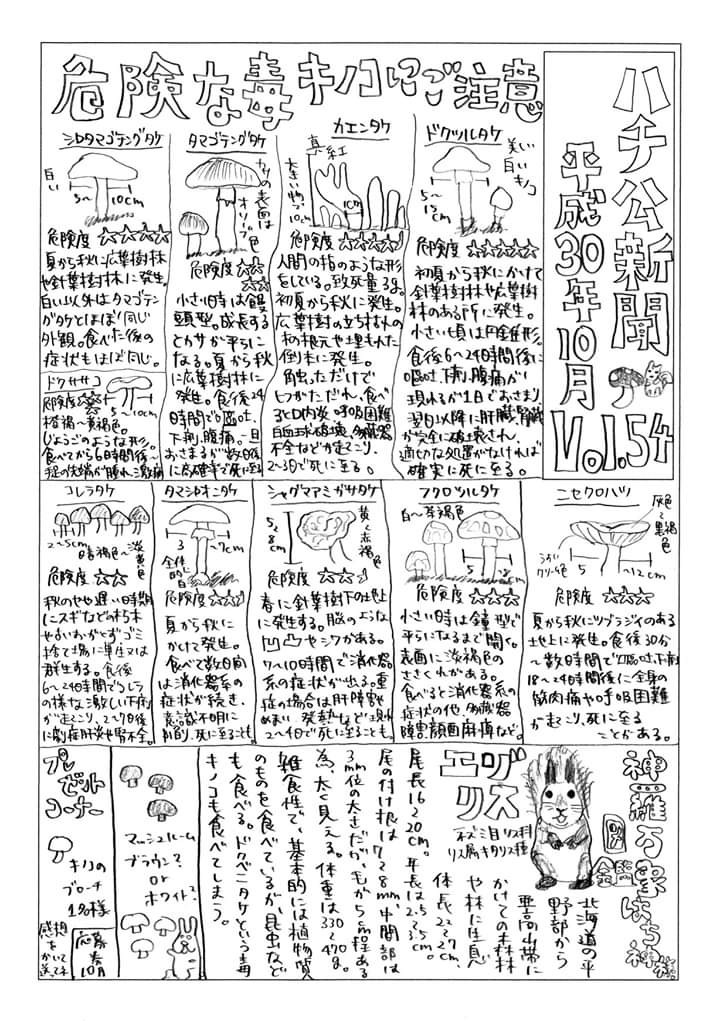 ハチ公新聞
平成30年10月
Vol.54
危険な毒キノコにご注意
ドクツルタケ
美しい
白いキノコ
5〜
15cm
危険度 ☆☆☆☆☆
初夏から秋にかけて
針葉樹林や広葉樹
林のある所に発生。
小さい頃は円錐形。
食後6〜24時間後に
嘔吐、下痢、腹痛が
現れるが1日でおさまり、
翌日以降に肝臓、腎臓
が完全に破壊され、
適切な処置がなければ
確実に死に至る。
カエンタケ
真紅
大きい物で
10cm
危険度 ☆☆☆☆
人間の指のような形
をしている。致死量3g。
初夏から秋に発生。
広葉樹の立ち枯れの
木の根元や埋もれた
倒木に発生。
触っただけで
ヒフがただれ、食べ
ると口内炎、呼吸困難
白血球破壊、多臓器
不全などが起こり、
2〜3日で死に至る。
タマゴテングタケ
カサの表面は
オリーブ色
危険度 ☆☆
☆☆
小さい時は饅
頭型。成長する
とカサが平らに
なる。夏から秋
に広葉樹林に
発生。食後24
時間で嘔吐、
下痢、腹痛。一旦
おさまるが数日後
に高確率で死に至る
シロタマゴテングタケ
白い
5〜10cm
危険度 ☆☆☆☆
夏から秋に広葉樹林
や針葉樹林に発生。
白い以外はタマゴテン
グタケとほぼ同じ
外観。食べた後の
症状もほぼ同じ。
ドクササコ
危険度☆☆
5〜10cm
橙褐〜黄褐色。
じょうごのような形。
食べてから6日間後〜
指の先端が腫れ、激痛
ニセクロハツ
灰色〜黒褐色
うすいクリーム色
5〜12cm
危険度 ☆☆☆
夏から秋にツブラジイのある
地上に発生。食後30分
〜数時間で嘔吐、下痢
18〜24時間後に全身の
筋肉痛や呼吸困難
が起こり、死に至る
ことがある。
フクロツルタケ
白〜茶褐色
危険度 ☆☆☆
小さい時は鐘型で
平らになるまで開く。
表面に淡褐色の
ささくれがある。
食べると消化器系の
症状の他、多臓器
障害、顔面麻痺など。
シャグマアミガサタケ
5〜8cm
黄〜赤褐色
危険度 ☆☆
春に針葉樹下の地上
に発生する。脳のような
凹凸やシワがある。
7〜10時間で消化器
系の症状が出る。重
症の場合は肝障害、
めまい、発熱などが現れ
2〜4日で死に至ることも。
タマシロオニタケ
3〜7cm
全体的に白
危険度 ☆☆
夏から秋に
かけて発生。
食べて数日間
は消化器系の
症状が続き、
意識不明に
陥り、死に至ることも。
コレラタケ
2〜5cm
暗褐色〜淡黄色
危険度 ☆☆
秋のやや遅い時期
にスギなどの朽ち木
やおがくず、ゴミ
捨て場に単生又は
群生する。食後
6〜24時間でコレラ
の様な激しい下痢
が起こり、2〜7日後
に劇症肝炎や腎不全。
神羅万象はち神
図鑑
エゾリス
ネズミ目リス科
リス属キタリス種
北海道の平
野部から
亜高山帯に
かけての森林
や林に生息
体長22〜27cm、
尾長16〜20cm。耳長は2.5〜3.5cm。
尾の付け根は7〜8mm、中間部は
3mm位の太さだが、毛が5cm程ある
為、太く見える。体重は330〜470g。
雑食性で、基本的には植物質
のものを食べているが、昆虫など
も食べる。ドクベニタケという毒
キノコも食べてしまう。
マッシュルーム
ブラウン?
or
ホワイト?
プレゼントコーナー
キノコの
ブローチ
1名様
応募券
10月
感想をかいて送ってネ